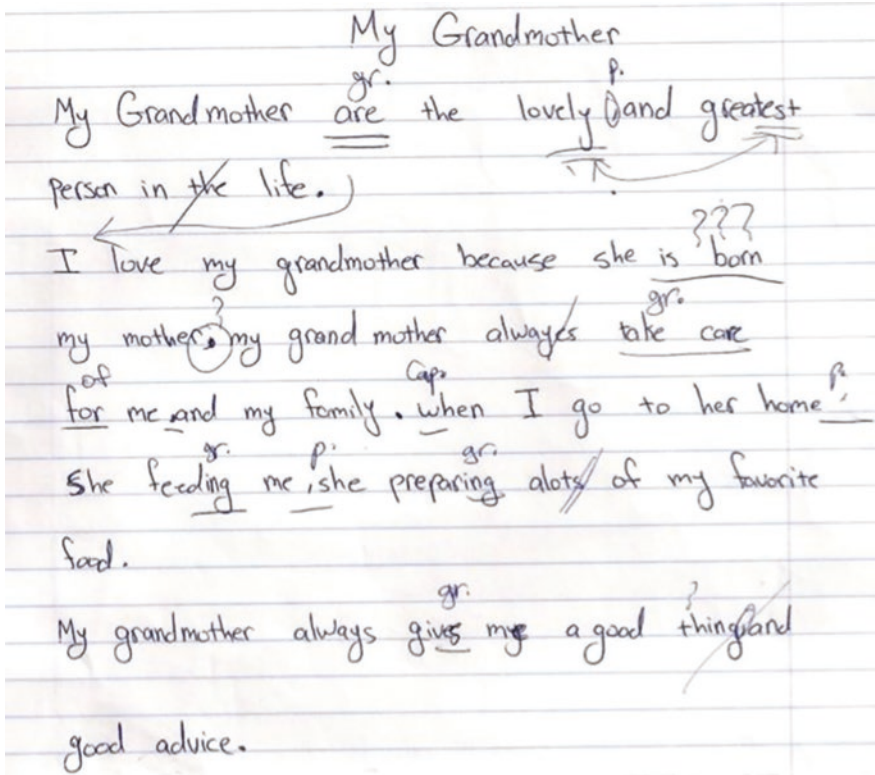 My Grandmother
gr. p.
My Grandmother are the lovely and greatest
person in the life.
???
I love my grandmother because she is born
? gr.
my mother. my grand mother alwayes take care
of Cap. p.
for me and my family. when I go to her home,
gr. p. gr.
She feeding me, she preparing alots of my favorite
food.
gr. ?
My grandmother always gives me a good thing and
good advice.